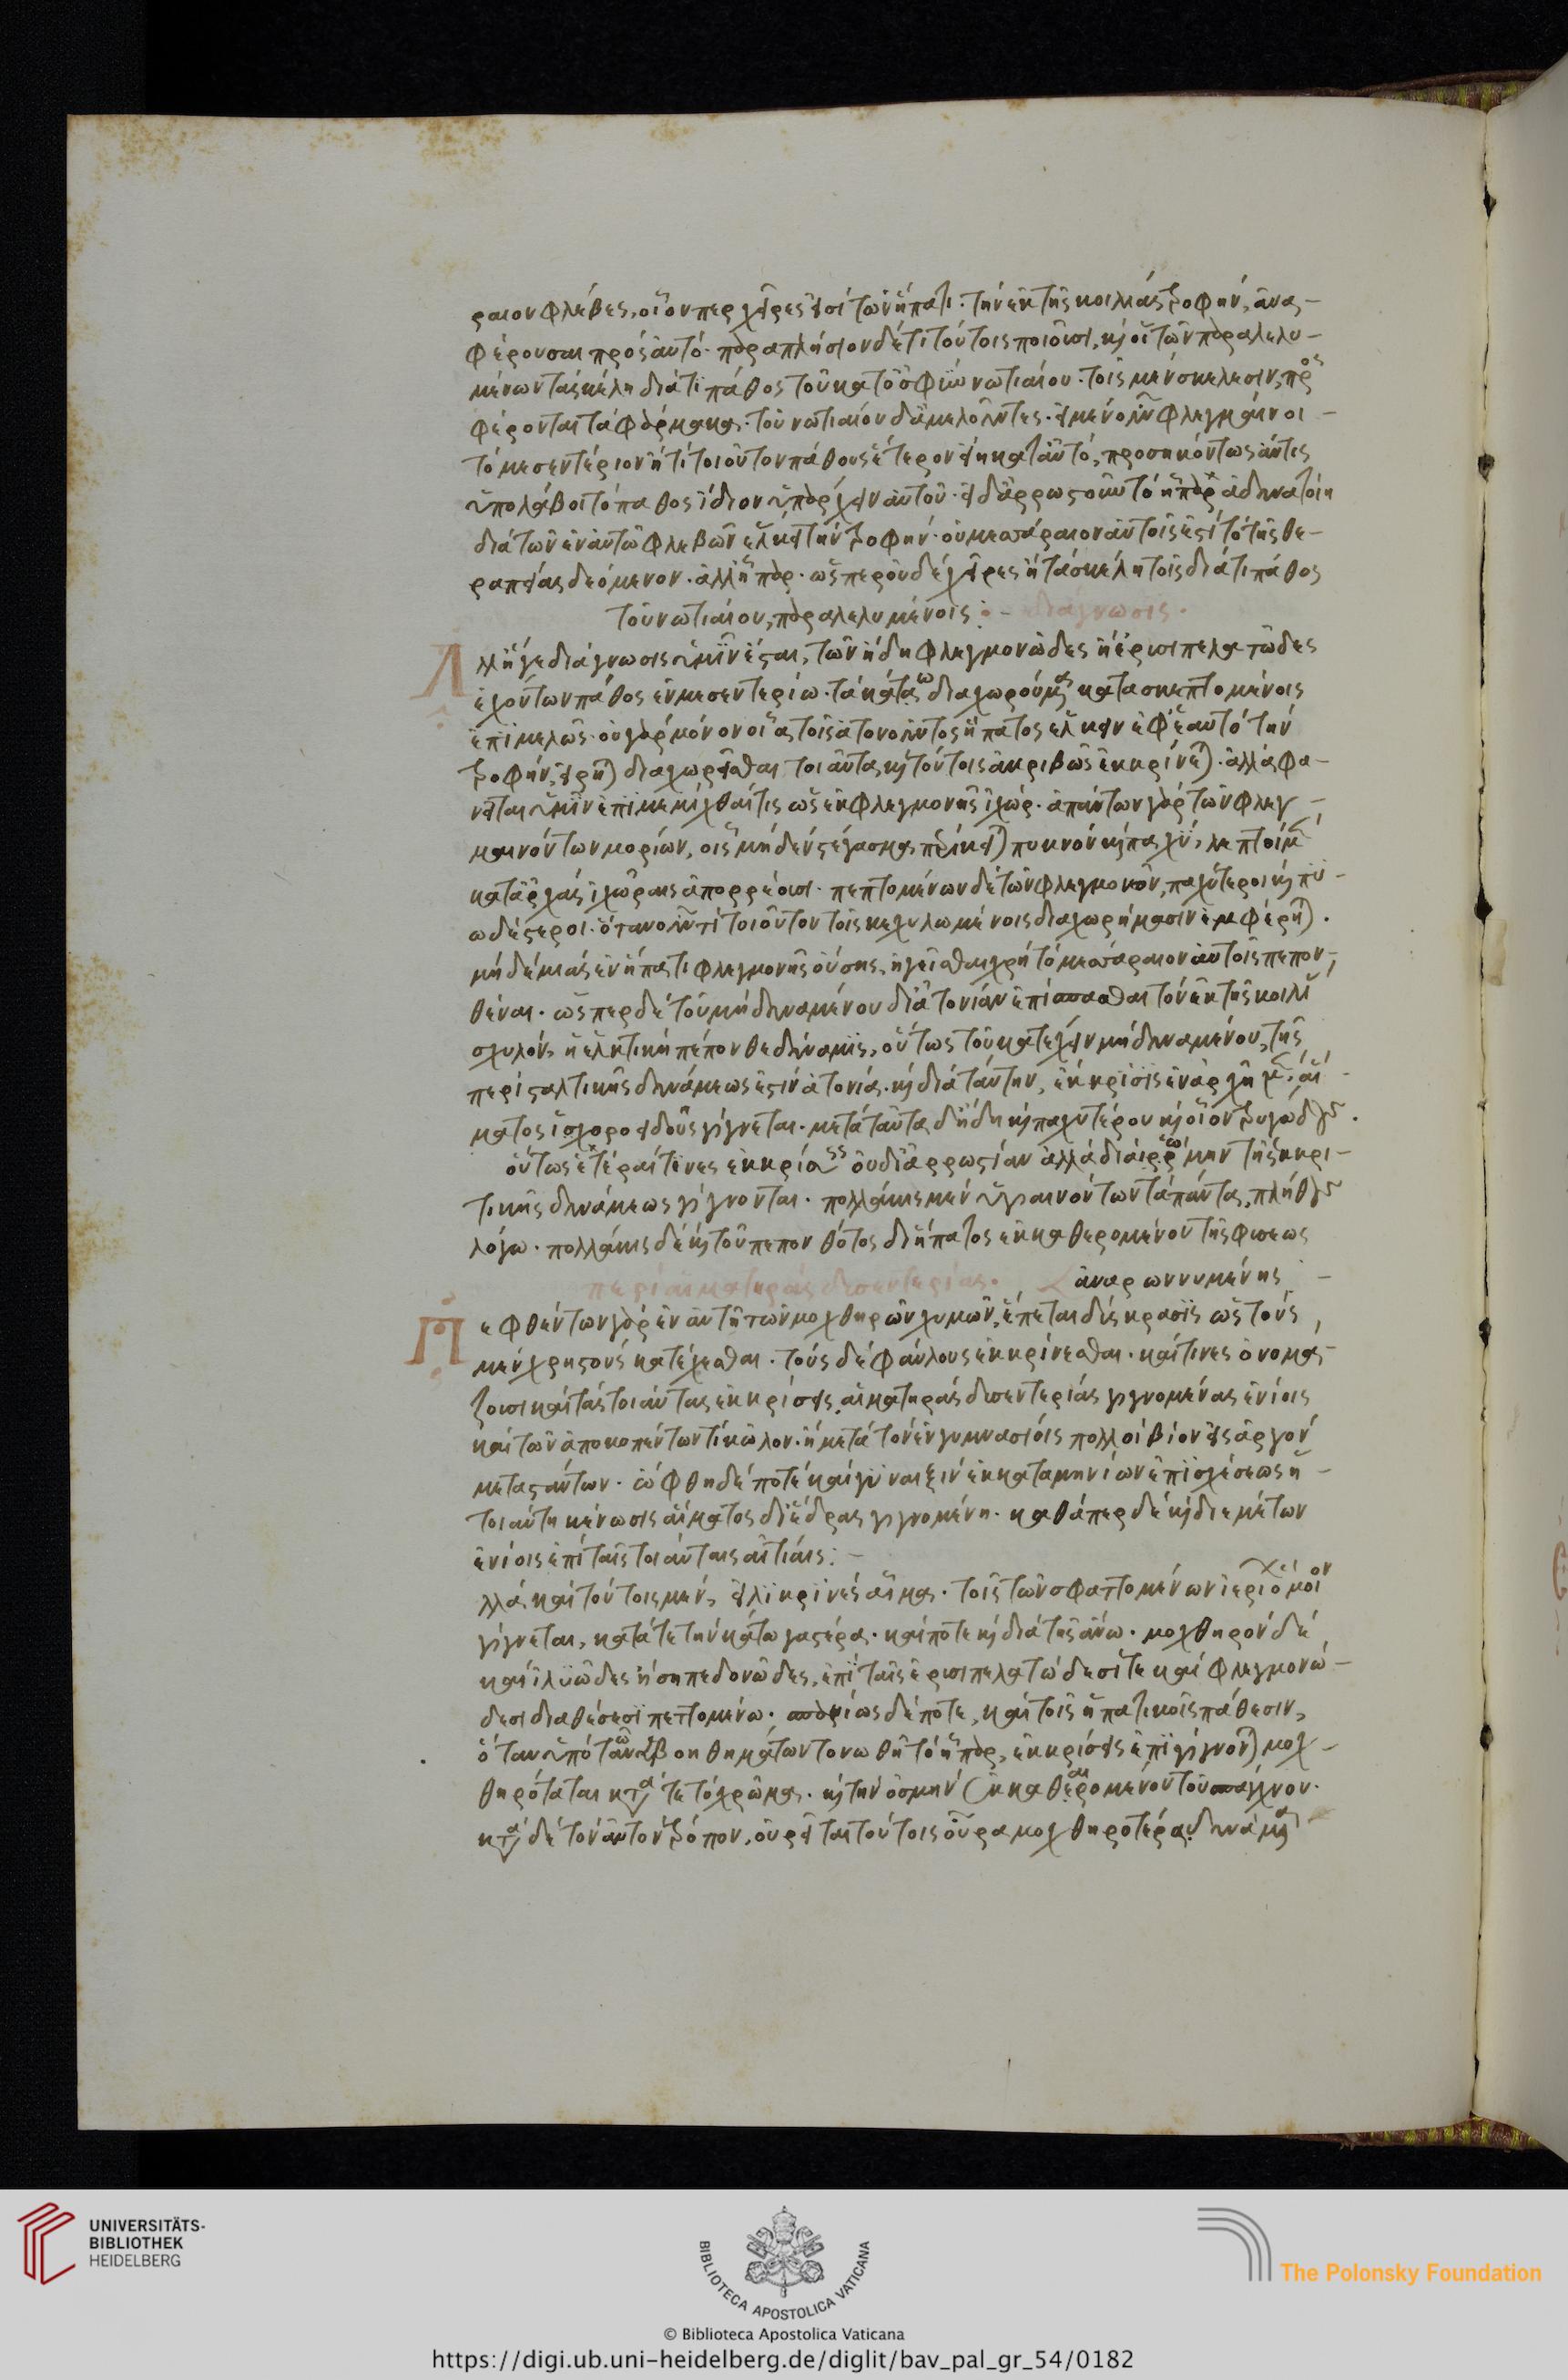 ραιον φλέβες, οἷον περ χεῖρες εἰσὶ τῶ ἥπατι· τὴν ἐκ τῆς κοιλίας τροφὴν, ἀνα-
φέρουσαι πρὸς αὐτό· παραπλήσιον δέ τι τούτοις ποιοῦσι, καὶ οἱ τῶν παραλελυ-
μένων τὰ σκέλη διά τι πάθος τοῦ κατ' ὀσφὺν νωτιαίου· τοῖς μὲν σκέλεσιν, προσ
φέρονται τὰ φάρμακα· τοῦ νωτιαίου δ' ἀμελοῦντες· εἰ μὲν οὖν φλεγμαίνοι
τὸ μεσεντέριον ἤ τι τοιοῦτον πάθους ἕτερον εἴη κατ' αὐτό, προσηκόντως ἄν τις
ὑπολάβοι τὸ πάθος ἴδιον ὑπάρχειν αὐτοῦ· εἰ δ' ἄρρωστουν τὸ ἧπαρ ἀδυνατοίη
διὰ τῶν ἐν αὐτῶ φλεβῶν ἕλκειν τὴν τροφήν· οὐ μεσάραιον αὐτοῖς ἐστὶ τὸ τῆς θε-
ραπείας δεόμενον· ἀλλ' ἧπαρ· ὥσπερ οὐδὲ χεῖρες ἢ τὰ σκέλη τοῖς διά τι πάθος
τοῦ νωτιαίου, παραλελυμένοις :- διάγνωσις.
Ἀλλ' ἥ γε διάγνωσις ὑμῖν ἔσται, τῶν ἤδη φλεγμονῶδες ἢ ἐρυσιπελατῶδες
ἐχόντων πάθος ἐν μεσεντερίω· τὰ κάτω διαχωρούμενα κατασκεπτομένοις
ἐπιμελῶς· οὐ γὰρ μόνον οἷα τοῖς ἀτονοῦντος ἥπατος ἕλκειν ἐφ' ἑαυτὸ τὴν
τροφήν, εἴρηται διαχωρεῖσθαι τοιαῦτα, καὶ τούτοις ἀκριβῶς ἐκκρίνεται· ἀλλὰ φα-
νεῖται ὑμῖν ἐπιμεμίχθαι τις ὡς ἐκ φλεγμονῆς ἰχώρ· ἁπάντων γὰρ τῶν φλεγ-
μαινόντων μορίων, οἷς μηδὲν στέγασμα περίκειται πυκνὸν καὶ παχύ, λεπτοὶ μὲν
κατ' ἀρχὰς ἰχῶραις ἀπορρέουσι· πεπτομένων δὲ τῶν φλεγμονῶν, παχύτεροι καὶ πυ-
ωδέστεροι· ὅταν οὖν τι τοιοῦτον τοῖς κεχυλωμένοις διαχωρήμασιν ἐμφέρηται·
μηδεμιᾶς ἐν ἥπατι φλεγμονῆς οὔσης, ἡγεῖσθαι χρὴ τὸ μεσάραιον αὐτοῖς πεπον-
θέναι· ὥσπερ δὲ τοῦ μὴ δυναμένου δι' ἀτονίαν ἐπισπᾶσθαι τὸν ἐκ τῆς κοιλίας
χυλόν, ἡ ἑλκτικὴ πέπονθε δύναμις, οὕτως τοῦ κατέχειν μὴ δυναμένου, τῆς
περισταλτικῆς δυνάμεως ἐστὶν ἀτονία· καὶ διὰ ταύτην, ἔκκρισις ἐν ἀρχῆ μὲν, αἵ-
ματος ἰσχοροειδοῦς γίγνεται· μετὰ ταῦτα δ' ἤδη καὶ παχυτέρου καὶ οἷον τρυγώδους.
οὕτως ἕτεραί τινες ἐκκρίσεις οὐ δι' ἀρρωστίαν ἀλλὰ διὰ ῥώμην τῆς ἐκκρι-
τικῆς δυνάμεως γίγνονται· πολλάκις μὲν ὑγιαινόντων τὰ πάντα, πλήθους
λόγω· πολλάκις δὲ καὶ τοῦ πεπονθότος δ' ἥπατος ἐκκαθερομένου τῆς φύσεως
περὶ αἱματηρᾶς δυσεντερίας. ἀναρωννυμένης -
Πεφθέντων γὰρ ἐν αὐτῆ τῶν μοχθηρῶν χυμῶν, ἕπεται διάκρασις ὡς τοὺς
μὲν χρηστοὺς κατέχεσθαι· τοὺς δὲ φαύλους ἐκκρίνεσθαι· καί τινες ὀνομά-
ζουσι καὶ τὰς τοιαύτας ἐκκρίσεις, αἱματηρὰς δυσεντερίας γιγνομένας ἐνίοις
καὶ τῶν ἀποκοπέντων τι κῶλον· ἢ μετὰ τὸν ἐν γυμνασίοις πολλοὶ βίον εἰς ἀργὸν
μεταστάντων· ὤφθη δέ ποτε καὶ γυναιξὶν ἐκ καταμηνίων ἐπισχέσεως ἡ
τοιαύτη κένωσις αἵματος δι' ἕδρας γιγνομένη· καθάπερ δὲ καὶ δι' ἐμέτων
ἐνίοις ἐπὶ ταῖς τοιαύταις αἰτίαις :-
λλὰ καὶ τούτοις μὲν, εἰλικρινὲς αἷμα· τοῖς τῶν σφαττομένων ἱερείων ὅμοιον
γίγνεται, κατά τε τὴν κάτω γαστέρα· καί ποτε καὶ διὰ τῆς ἄνω· μοχθηρὸν δὲ
καὶ ἰλυῶδες ἢ σηπεδονῶδες, ἐπὶ ταῖς ἐρυσιπελατώδεσί τε καὶ φλεγμονώ-
δεσι διαθέσεσι πεττομένω· σπανίως δέ ποτε, καὶ τοῖς ἡπατικοῖς πάθεσιν,
ὅταν ὑπὸ τῶν βοηθημάτων τονωθῆ τὸ ἧπαρ, ἐκκρίσεις ἐπιγίγνονται μοχ-
θηρόταται κατά τε τὸ χρῶμα· καὶ τὴν ὀσμὴν ἐκκαθαιρομένου τοῦ σπλάγχνου·
κατὰ δὲ τὸν αὐτὸν τρόπον, οὐρεῖται τούτοις οὖρα μοχθηρότερα, δυνάμεως
UNIVERSITÄTS-
BIBLIOTHEK
HEIDELBERG
BIBLIOTECA APOSTOLICA VATICANA
The Polonsky Foundation
© Biblioteca Apostolica Vaticana
https://digi.ub.uni-heidelberg.de/diglit/bav_pal_gr_54/0182